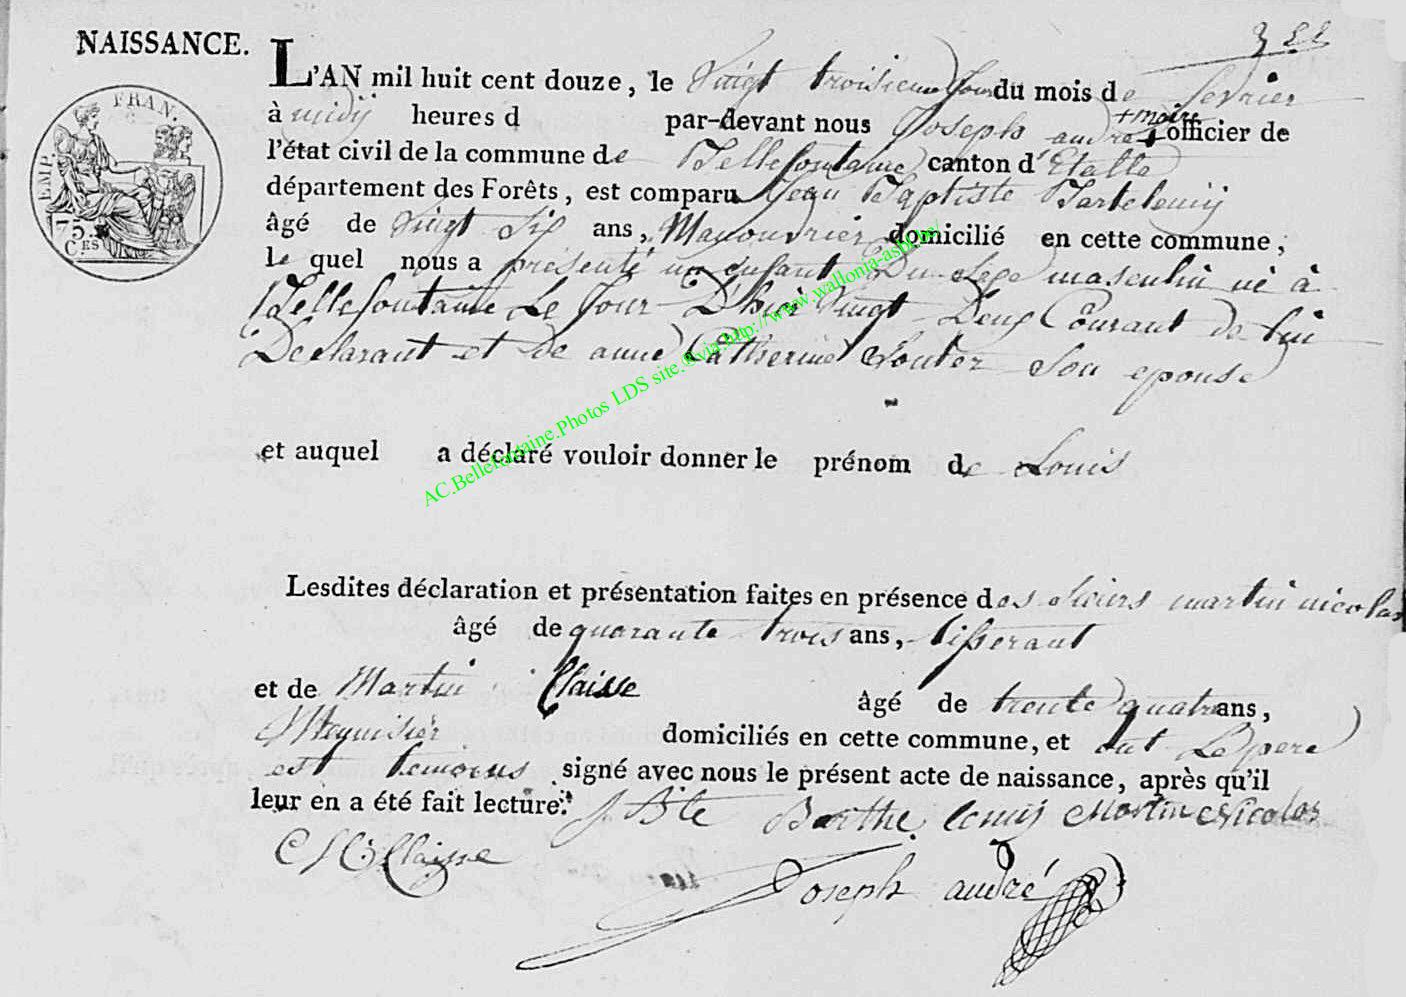 NAISSANCE.
FRAN.
EMP.
75.
C.ES
L'AN mil huit cent douze, le Vingt troisieme Jour du mois de fevrier
à midÿ heures d par-devant nous Joseph andré + maire officier de
l'état civil de la commune de Bellefontaine canton d'Etalle
département des Forêts, est comparu Jean Baptiste Bartelemÿ
âgé de Vingt Six ans, Manouvrier domicilié en cette commune,
le quel nous a présenté un enfant Du sexe masculin né à
Bellefontaine Le Jour D'hier Vingt Deux Courant de lui
Declarant et de anne Catherine son epouse
et auquel a déclaré vouloir donner le prénom de Louis
Lesdites déclaration et présentation faites en présence des Sieurs martin nicolas
âgé de quarante trois ans, tisserant
et de Martin Claisse âgé de trente quatre ans,
domiciliés en cette commune, et ont Le pere
est temoins signé avec nous le présent acte de naissance, après qu'il
leur en a été fait lecture.
J Bte Barthelemij Martin Nicolas
M Claisse
Joseph andré
AC.Bellefontaine.Photos LDS site.®via.http://www.wallonia-asbl.be/